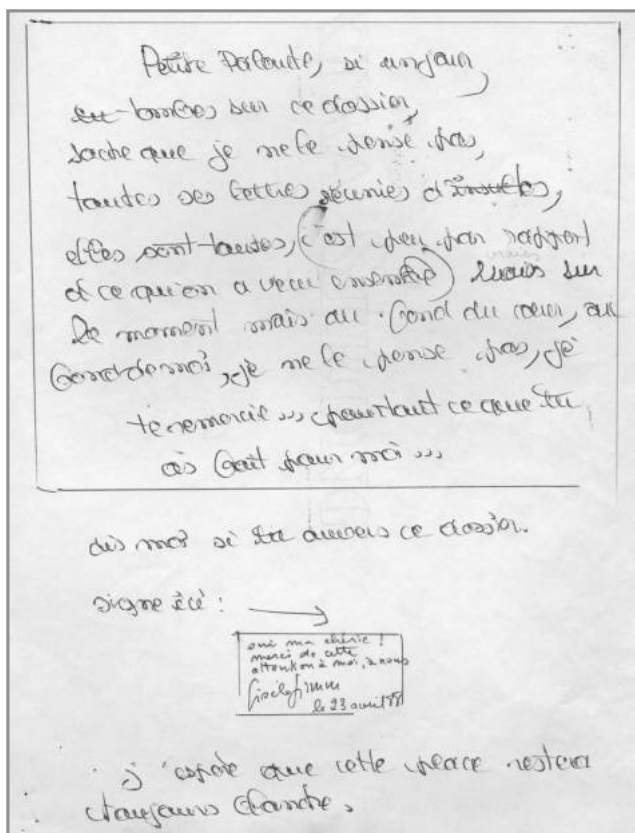 Petite Paloute, si un jour
tu tombes sur ce dossier,
sache que je ne le pense pas,
toutes ses lettres réunies d'insultes,
elles sont toutes, (c'est peu par rapport
et ce qu'on a vécu ensemble) vraies sur
le moment mais au fond du cœur, au
fond de moi, je ne le pense pas, je
te remercie ,,, pour tout ce que tu
as fait pour moi ,,,
dis moi si tu ouvres ce dossier.
signe ici :
oui ma chérie !
merci de cette
attention à moi, à nous
le 23 avril
j'espère que cette place restera
toujours blanche.